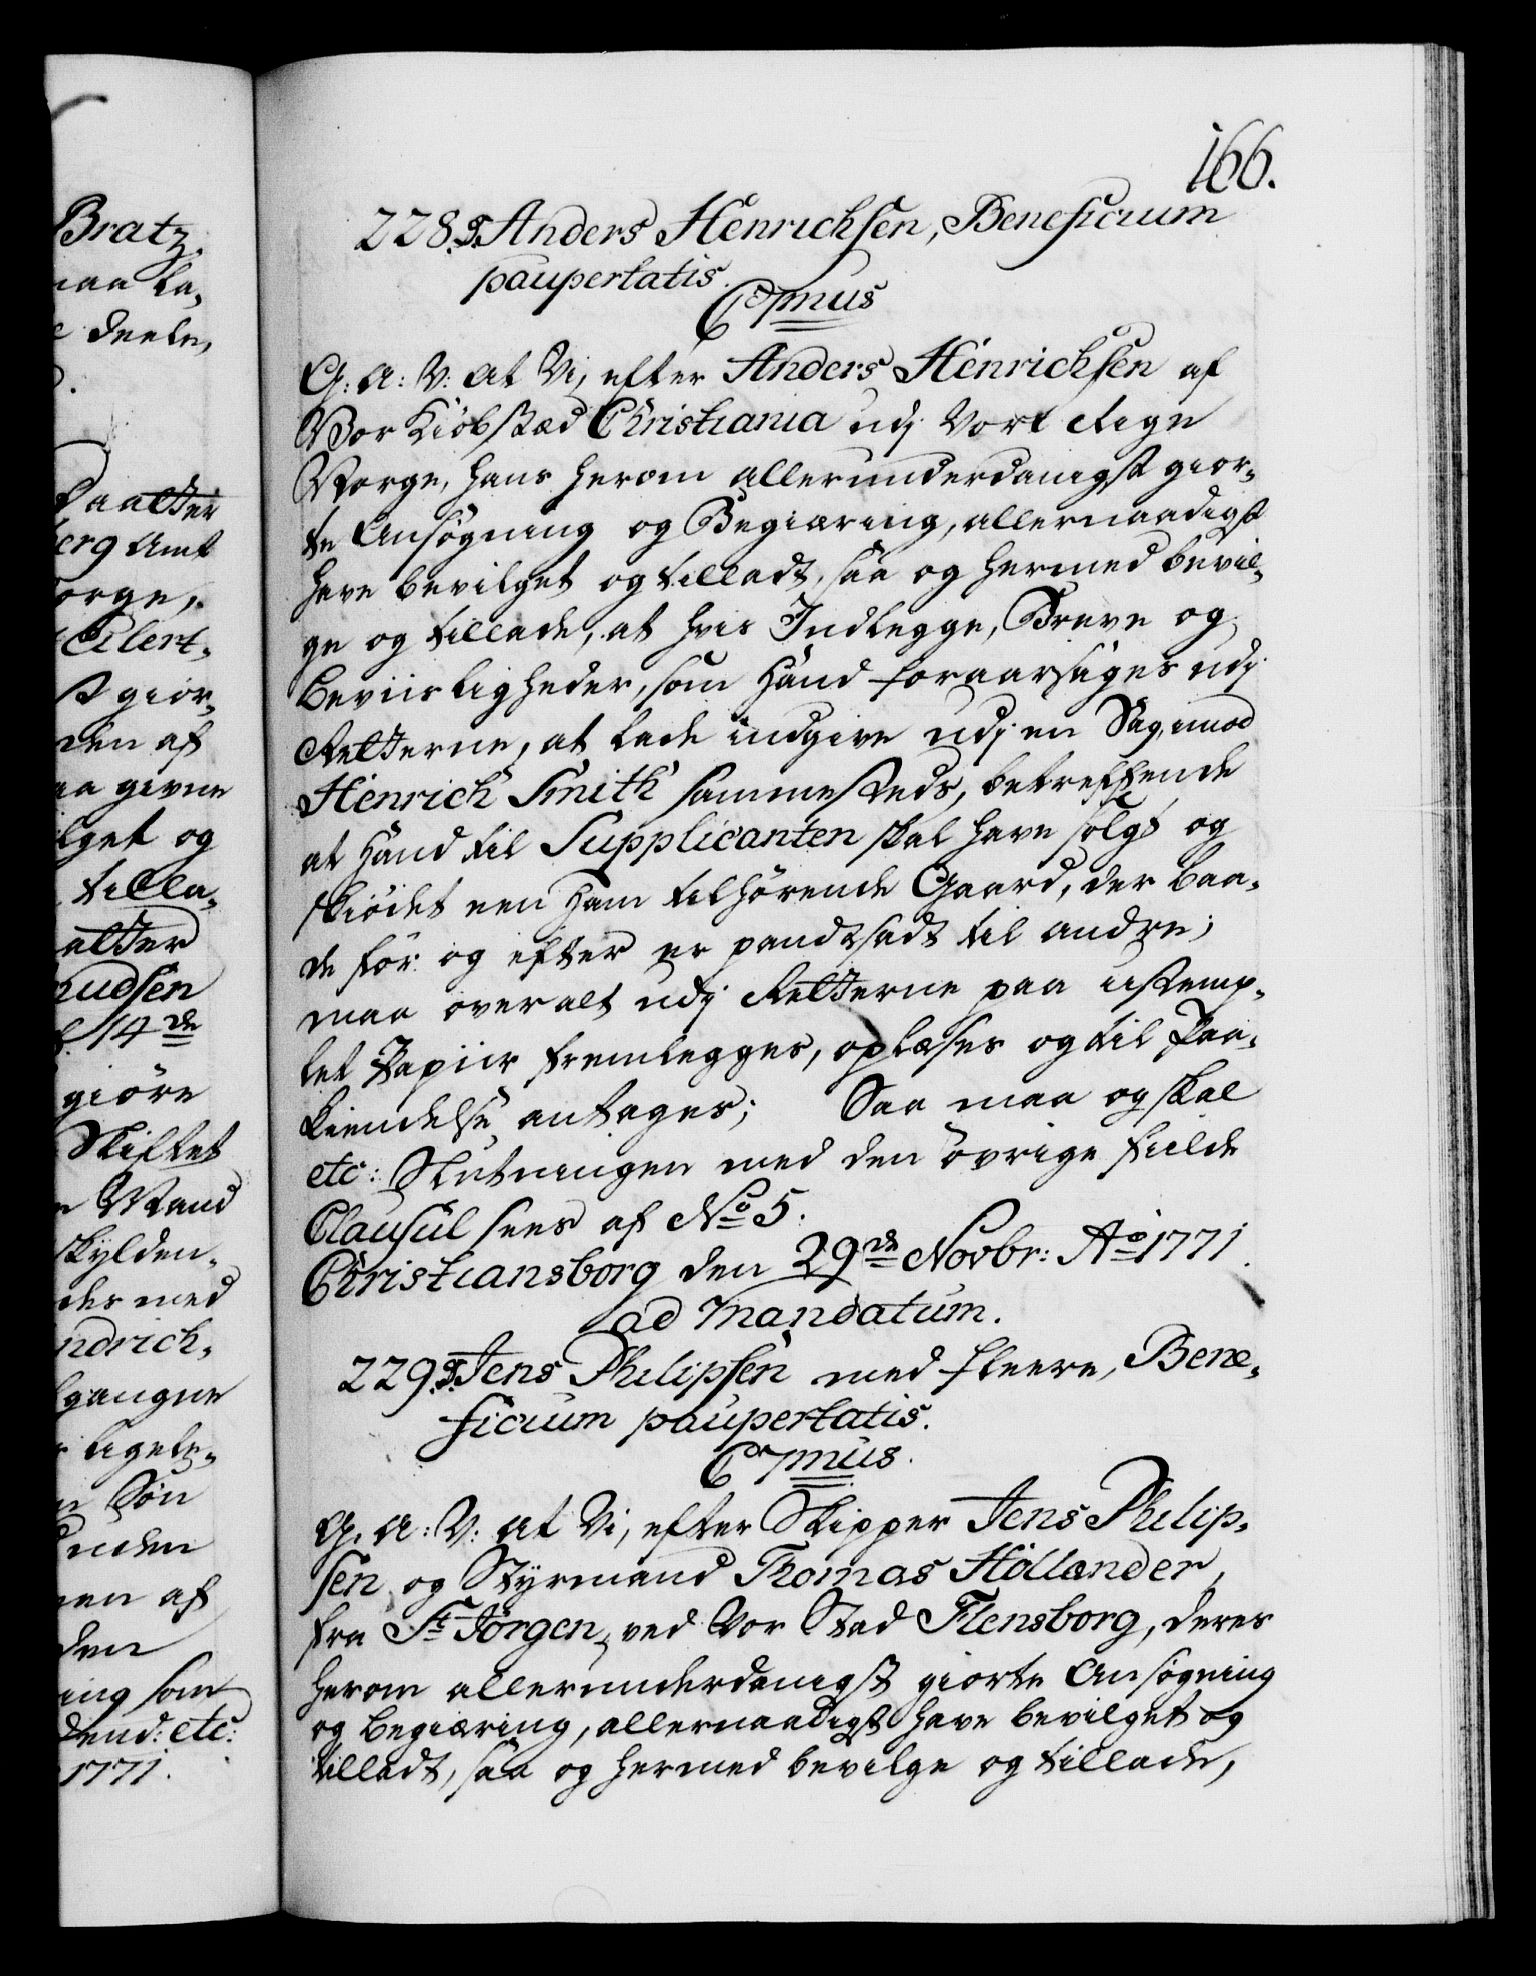 166.
228. S. Anders Henrichsen, Beneficium
paupertatis.
C 7mus
G: A: V: at Vi, efter Anders Henrichsen af
Vor Kiöbstæd Christiania udj Vort Rige
Norge, hans herom allerunderdanigst gior-
te Ansøgning og Begiæring, allernaadigst
have bevilget og tilladt, saa og hermed bevil-
ge og tillade, at hvis Indlegge, Breve og
beviisligheder, som hand foraarsages udj
Retterne, at lade indgive udj en Sag, imod
Henrich Smith sammesteds, betreffende
at hand til Supplicanten skal have solgt og
skiödet een ham tilhørende Gaard, der baa-
de før og efter er pandtsadt til andre;
maa overalt udj Retterne paa ustemp-
let Papiir fremlegges, oplæses og til Paa-
kiendelse antages; Saa maa og skal
etc: Slutningen med den øvrige fulde
Clausul sees af No 5.
Christiansborg den 29de Novbr: Ao 1771.
ad Mandatum.
229. S. Jens Philipsen med fleere, Bene-
ficium paupertatis.
C 7mus.
G. A: V: at Vi, efter Skipper Jens Philip-
sen og Styrmand Thomas Hollander,
fra St. Jørgen, ved Vor Stad Flensborg, deres
herom allerunderdanigst giorte Ansøgning
og begiæring, allernaadigst have bevilget og
tilladt, saa og hermed bevilge og tillade,
Bratz.
maa la-
deele,
Daatter
berg Amt
Norge,
Eilert-
st gior-
den af
aa givne
lget og
tilla-
atter
nudsen
14de
giöre
Skiftet
Mand
skylden-
des med
ndrich-
gangne
ligele-
Søn
inden
af
den
ing som
end: etc:
1771.